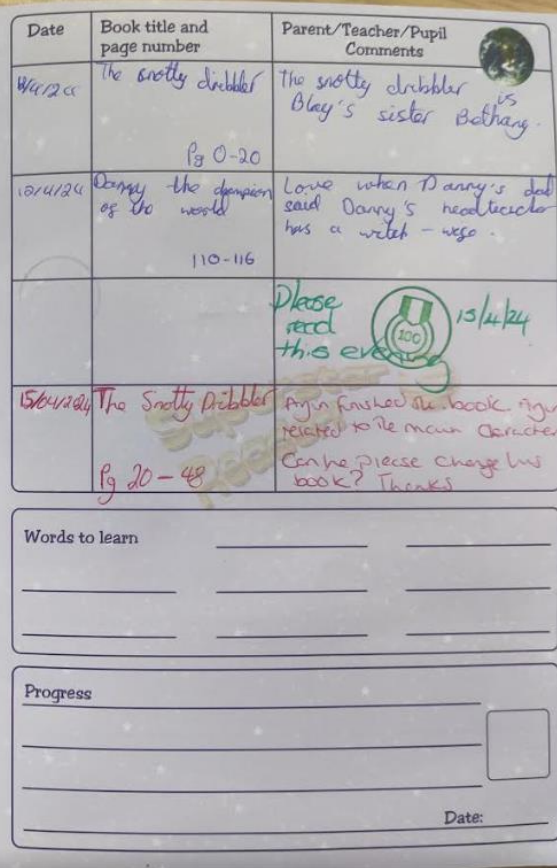 Date
Book title and
page number
Parent/Teacher/Pupil
Comments
The snotty dribbler
Pg 0-20
The snotty dribbler is
Blay's sister Bethany.
Danny the champion
of the world
110-116
Love when Danny's dad
said Danny's headteacher
has a
Please
read
this
100
15/4/24
Superstar
Reader
15/04/2024
The Snotty Dribbler
Pg 20-48
finished the book.
related to the main character
Can he please change his
book? Thanks
Words to learn
Progress
Date: